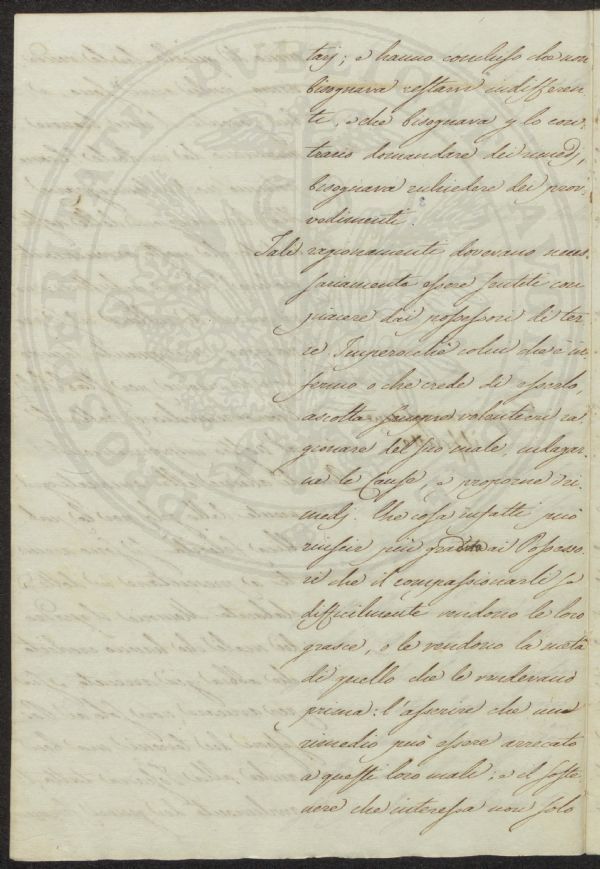 tarj; e hanno concluso che non
bisognava restare indifferen-
ti, e che bisognava p lo con-
trario domandare dei rimedj,
bisognava richiedere dei prov-
vedimenti.
Tali ragionamenti dovevano neces-
sariamente essere sentiti con
piacere dai possessori di ter-
re. Imperocchè colui che è in-
fermo o che crede di esserlo,
ascolta sempre volentieri ra-
gionare del suo male, indagar-
ne le Cause, e proporne dei ri-
medj. Che cosa infatti può
riuscir più gradito ai Possesso-
ri che il compassionarli se
difficilmente vendono le loro
grasce, o le vendono la metà
di quello che le vendevano
prima: l'asserire che un
rimedio può essere arrecato
a questi loro mali: e il soste-
nere che interessa non solo